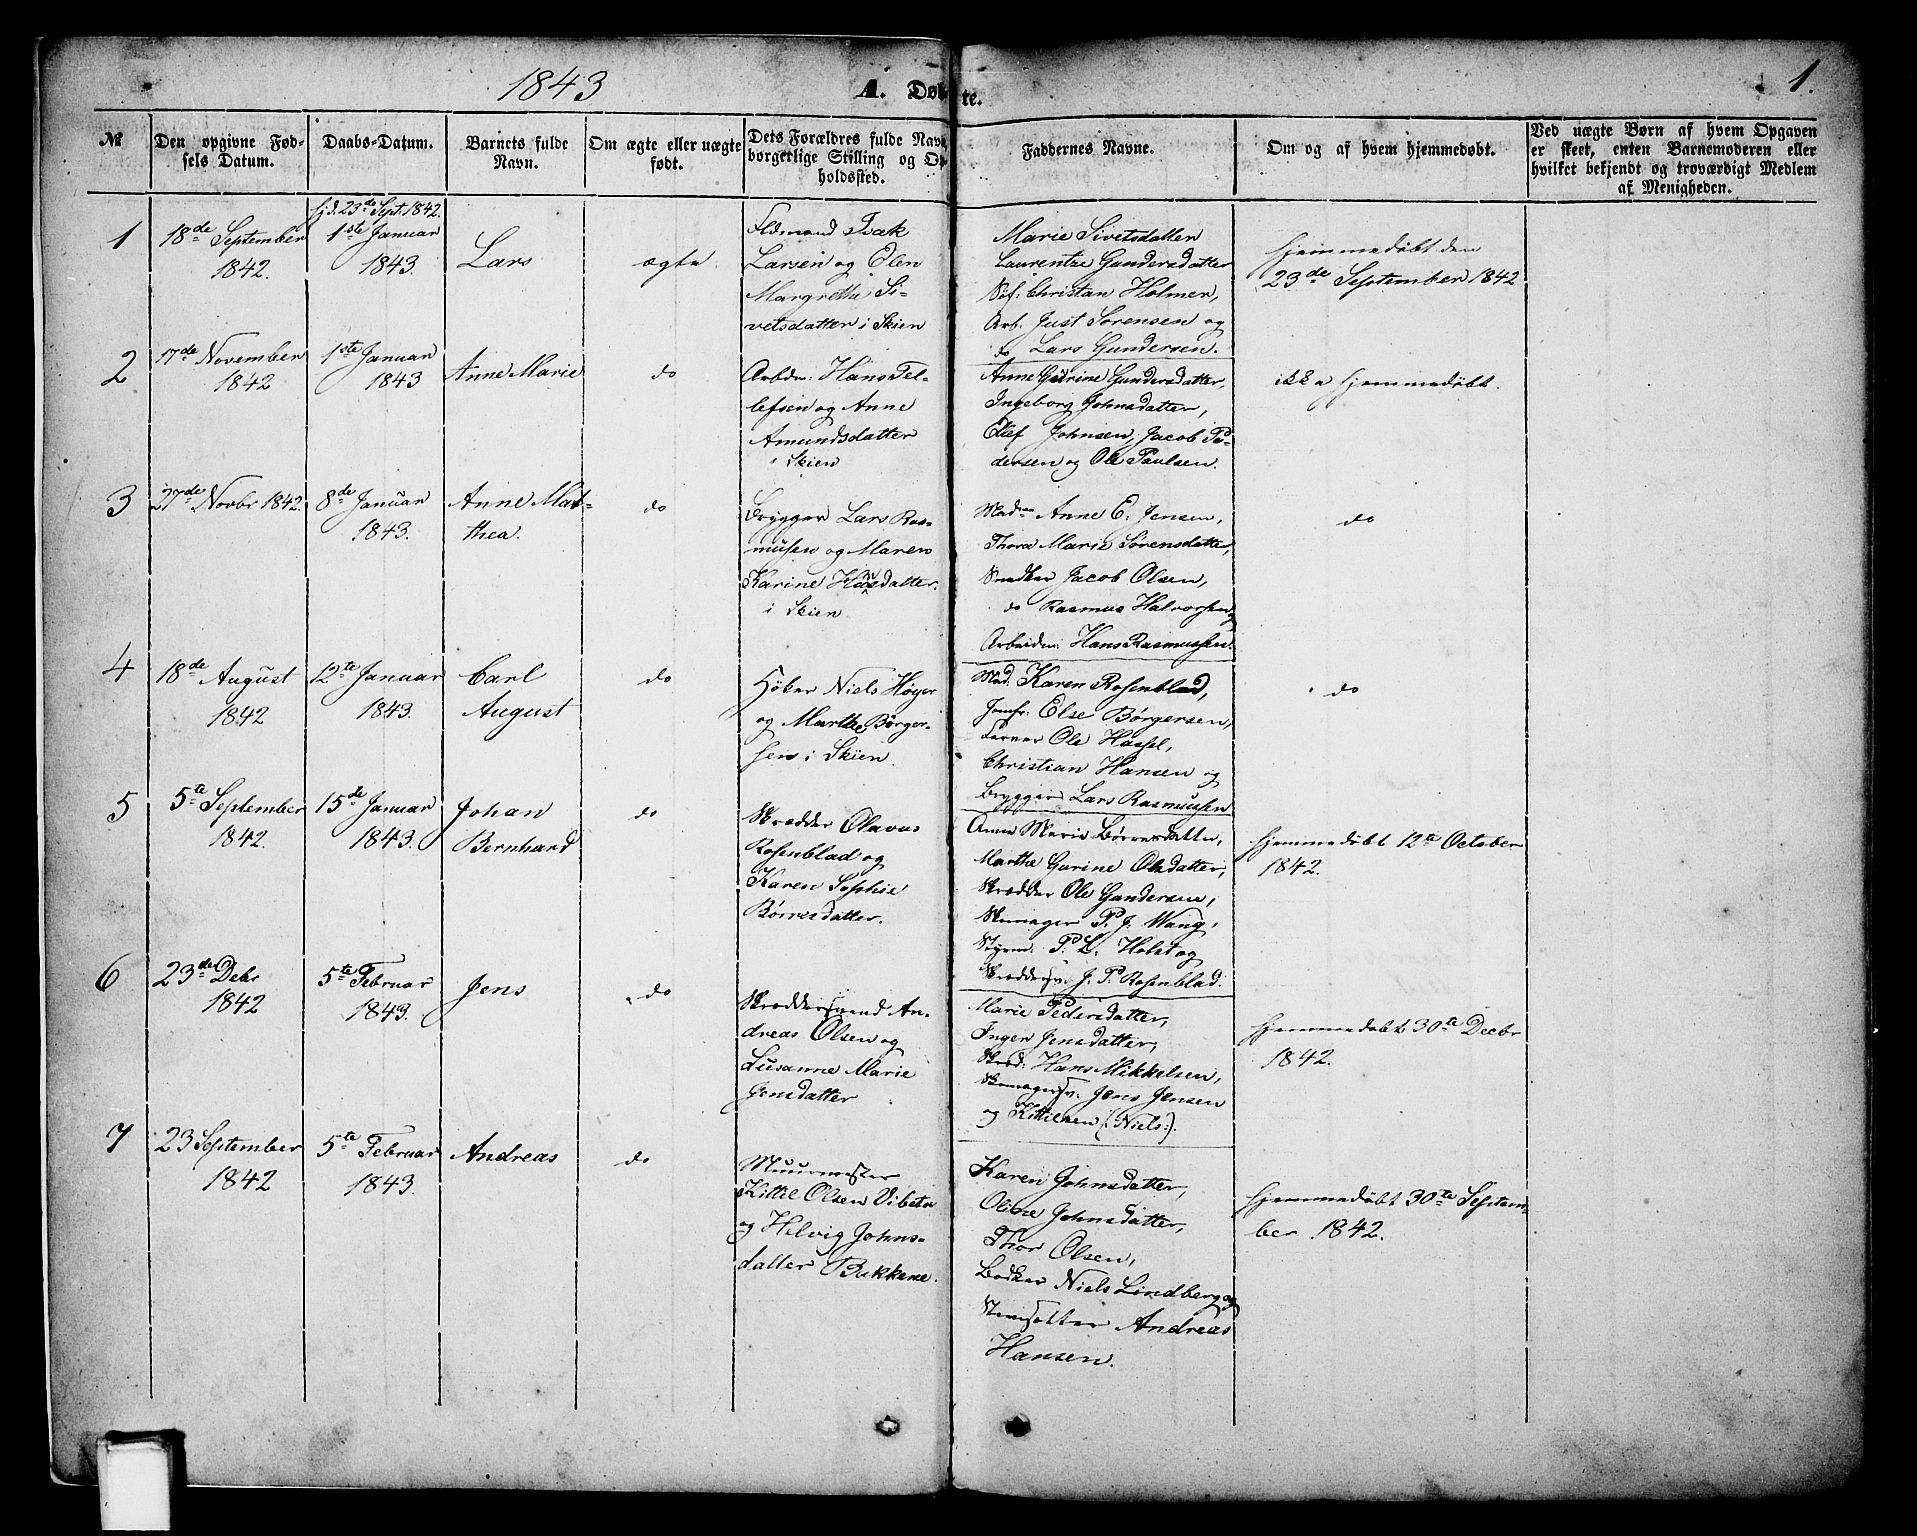 1843
A. Døbte.
1.
№
Den opgivne Fød-
sels Datum.
Daabs-Datum.
Barnets fulde
Navn.
Om ægte eller uægte
født.
Dets Forældres fulde Navn,
borgetlige Stilling og Op-
holdssted.
Faddernes Navne.
Om og af hvem hjemmedøbt.
Ved uægte Børn af hvem Opgaven
er skeet, enten Barnemoderen eller
hvilket bekjendt og troværdigt Medlem
af Menigheden.
1
18de September
1842.
hjd. 23de Sept. 1842.
1ste Januar
1843.
Lars
ægte
Isak
Larsen og Elen
Margrethe Si-
vetsdatter i Skien
Marie Sivetsdatter
Laurentze Gundersdatter
Søf: Christian Holmer,
Arb. Just Sørensen og
do Lars Gundersen.
hjemmedøbt den
23de September 1842
2
17de November
1842
1ste Januar
1843
Anne Marie
do
Arbdr: Hans Tel-
lefsen og Anne
Amundsdatter
i Skien
Anne Gurine Gundersdatter,
Ingeborg Johnsdatter,
Elef Johnsen, Jacob Pe-
dersen og Ole Paulsen.
ikke hjemmedøbt.
3
27de Novbr 1842.
8de Januar
1843.
Anne Mat-
thea.
do
Brygger Lars Ras-
musen og Maren
Karine Hansdatter.
i Skien
Madm Anne E. Jensen,
Thora Marie Sørensdatter,
Snedker Jacob Olsen,
do Rasmus Halvorsen og
Arbeider: Hans Rasmussen.
do
4
18de August
1842
12te Januar
1843.
Carl
August
do
Høker Niels Høyer
og Marthe Børger-
sen i Skien.
Mad: Karen Rosenblad,
Jomfr: Else Børgersen,
Farver Ole Hassel,
Christian Hansen og
Brygger Lars Rasmussen
do
5
5te September
1842.
15de Januar
1843.
Johan
Bernhard
do
Skrædder Olavus
Rosenblad og
Karen Sophie
Børresdatter.
Anne Marie Børresdatter,
Marthe Gurine Olsdatter,
Skrædder Ole Gundersen,
Skomager P. J. Wang,
Styrm. P. L. Holst og
Skræddersv. J. P. Rosenblad.
hjemmedøbt 12te October
1842.
6
23de Debr
1842
5te Februar
1843.
Jens
do
Skræddersvend An-
dreas Olsen og
Susanne Marie
Jensdatter
Marie Pedersdatter,
Inger Jensdatter,
Skræd: Hans Mikkelsen,
Skomagersv. Jens Jensen
og Kittilsen (: Niels :).
hjemmedøbt 30te Decbr
1842.
7
23 September
1842
5te Februar
1843.
Andreas
do
Muurmester
Kittil Olsen Vibeto
og Helvig Johns-
datter Bakkene.
Karen Johnsdatter,
Oline Johnsdatter,
Thor Olsen,
Bødker Niels Lindberg og
Andreas
Hansen.
hjemmedøbt 30te Septem-
ber 1842.